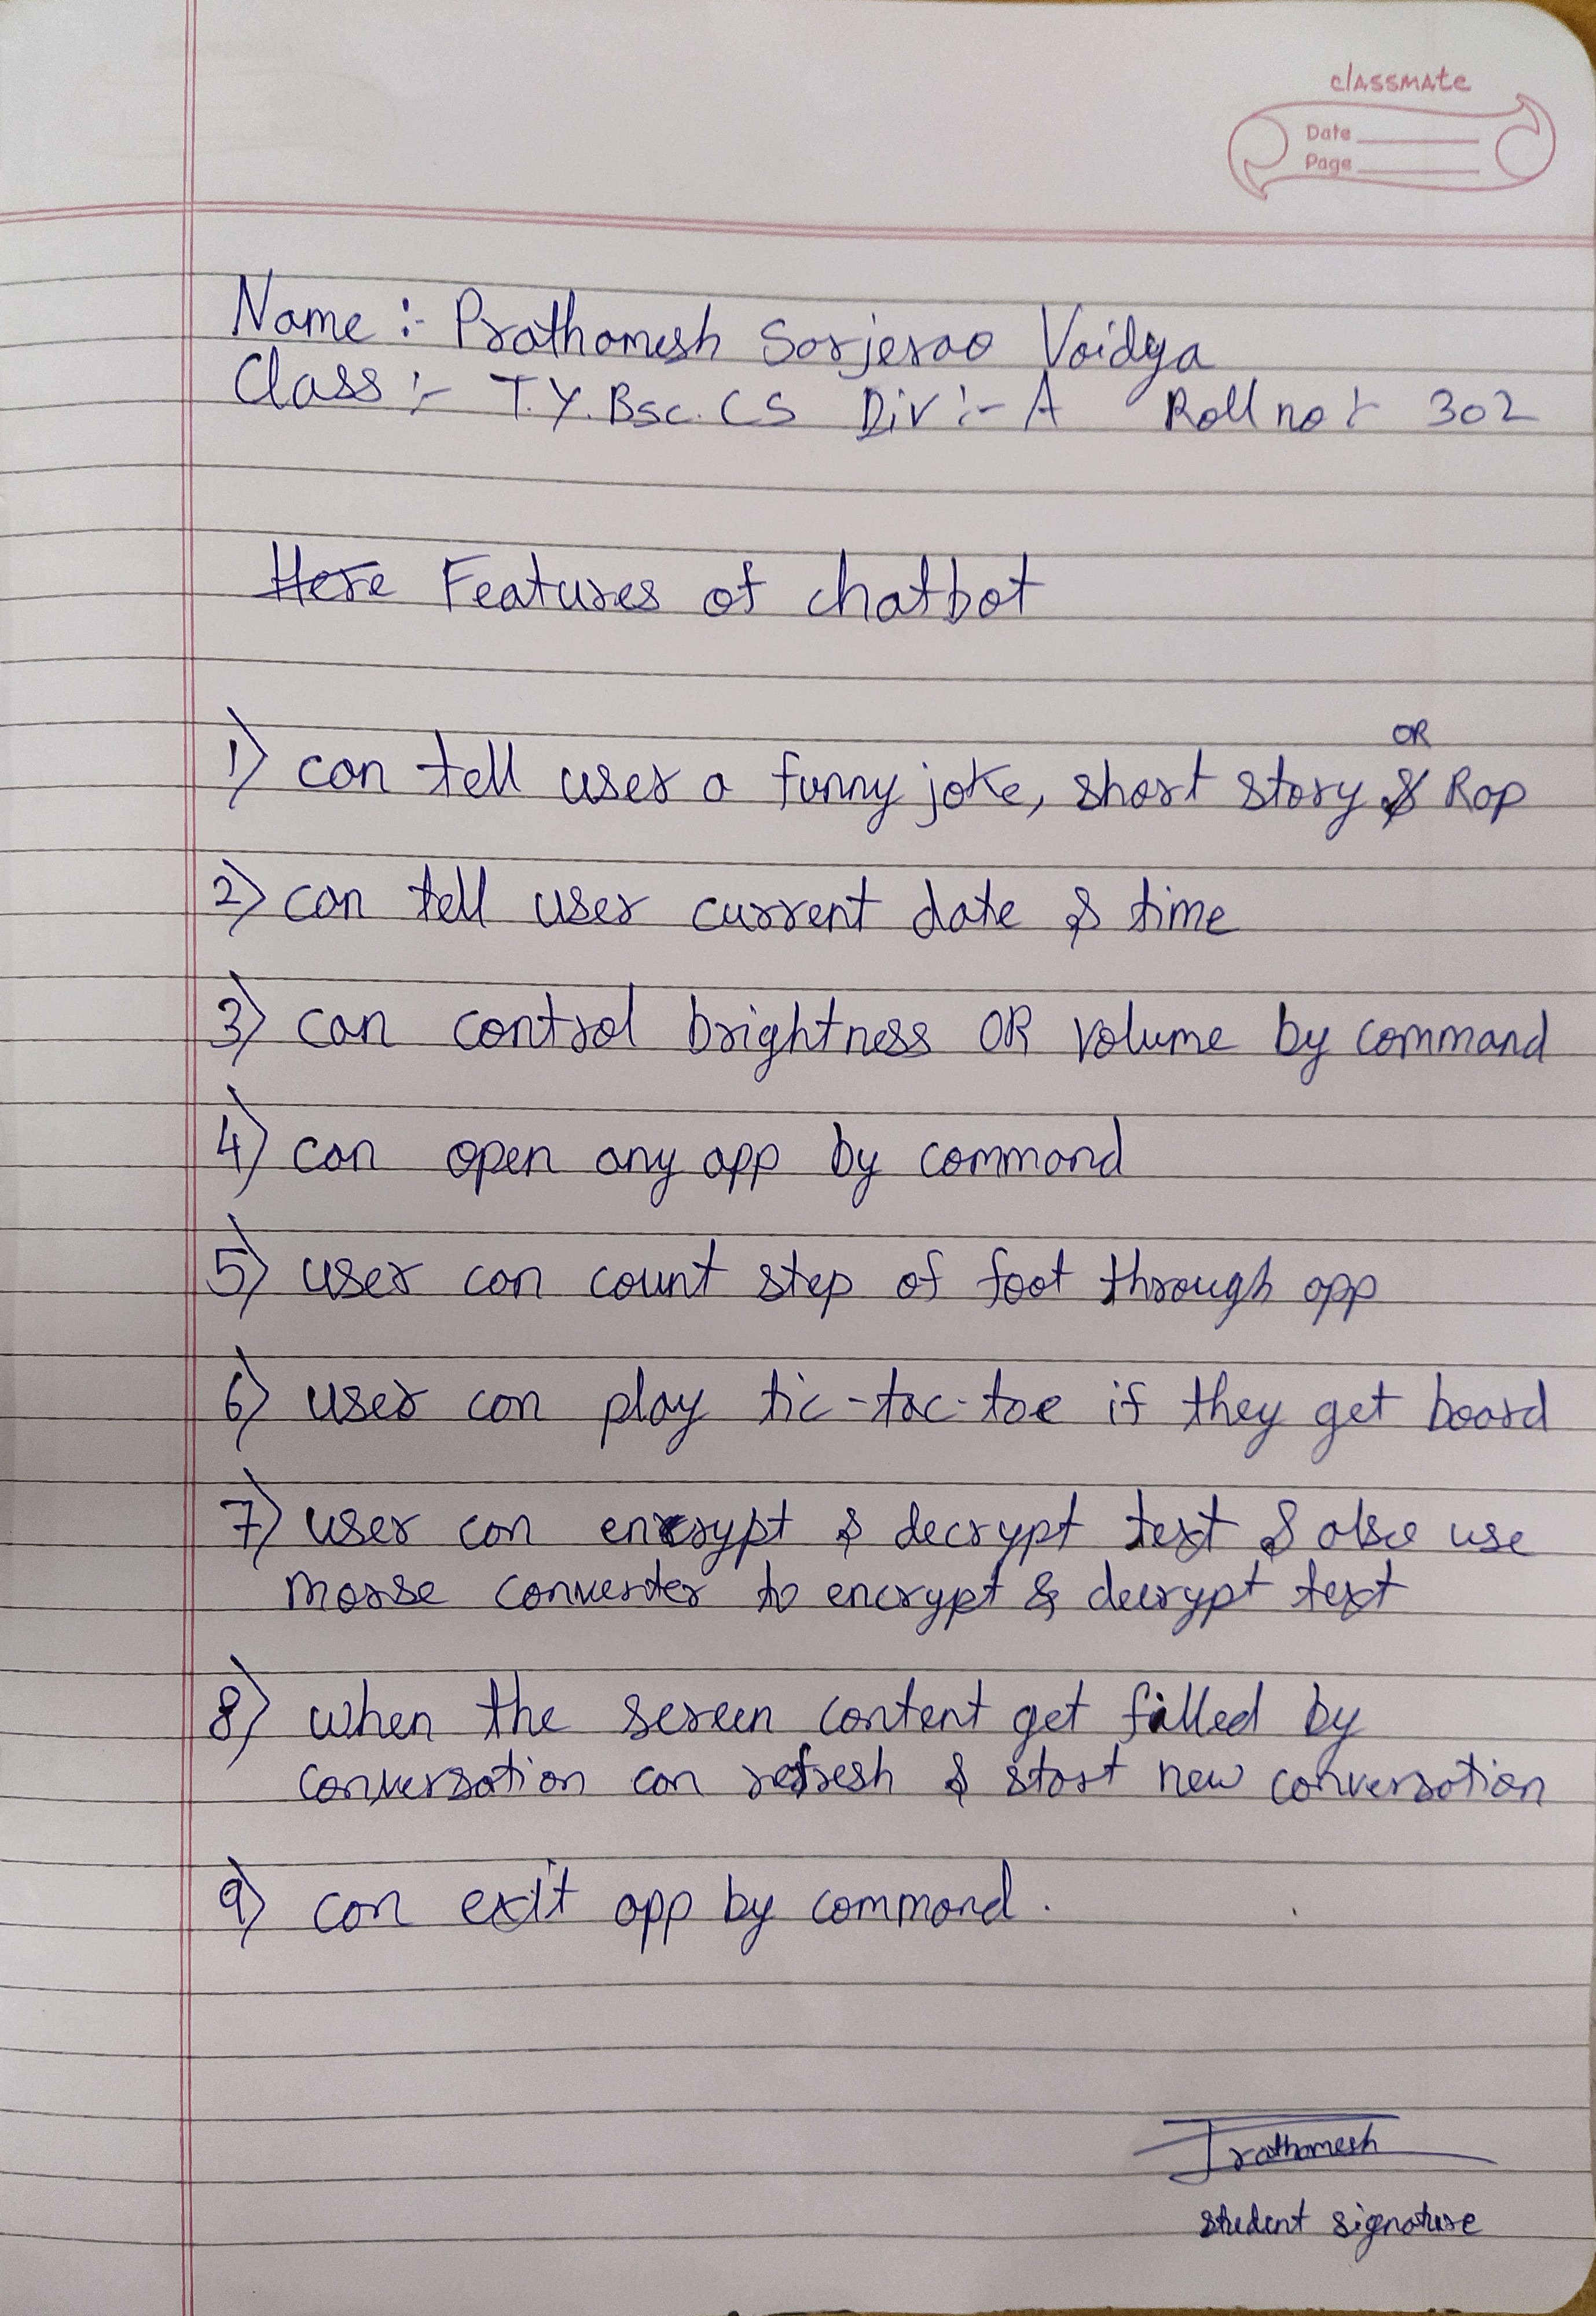 classmate
Date
Page
Name :- Prathamesh Sarjerao Vaidya
Class :- T.Y.Bsc.CS Div :- A Roll no :- 302
Here Features of chatbot
OR
1) can tell user a funny joke, short story & Rap
2) can tell user current date & time
3) can control brightness OR volume by command
4) can open any app by command
5) user can count step of foot through app
6) user can play tic-tac-toe if they get board
7) user can encrypt & decrypt text & also use
morse converter to encrypt & decrypt text
8) when the screen content get filled by
conversation can refresh & start new conversation
9) can exit app by command.
Prathamesh
student signature